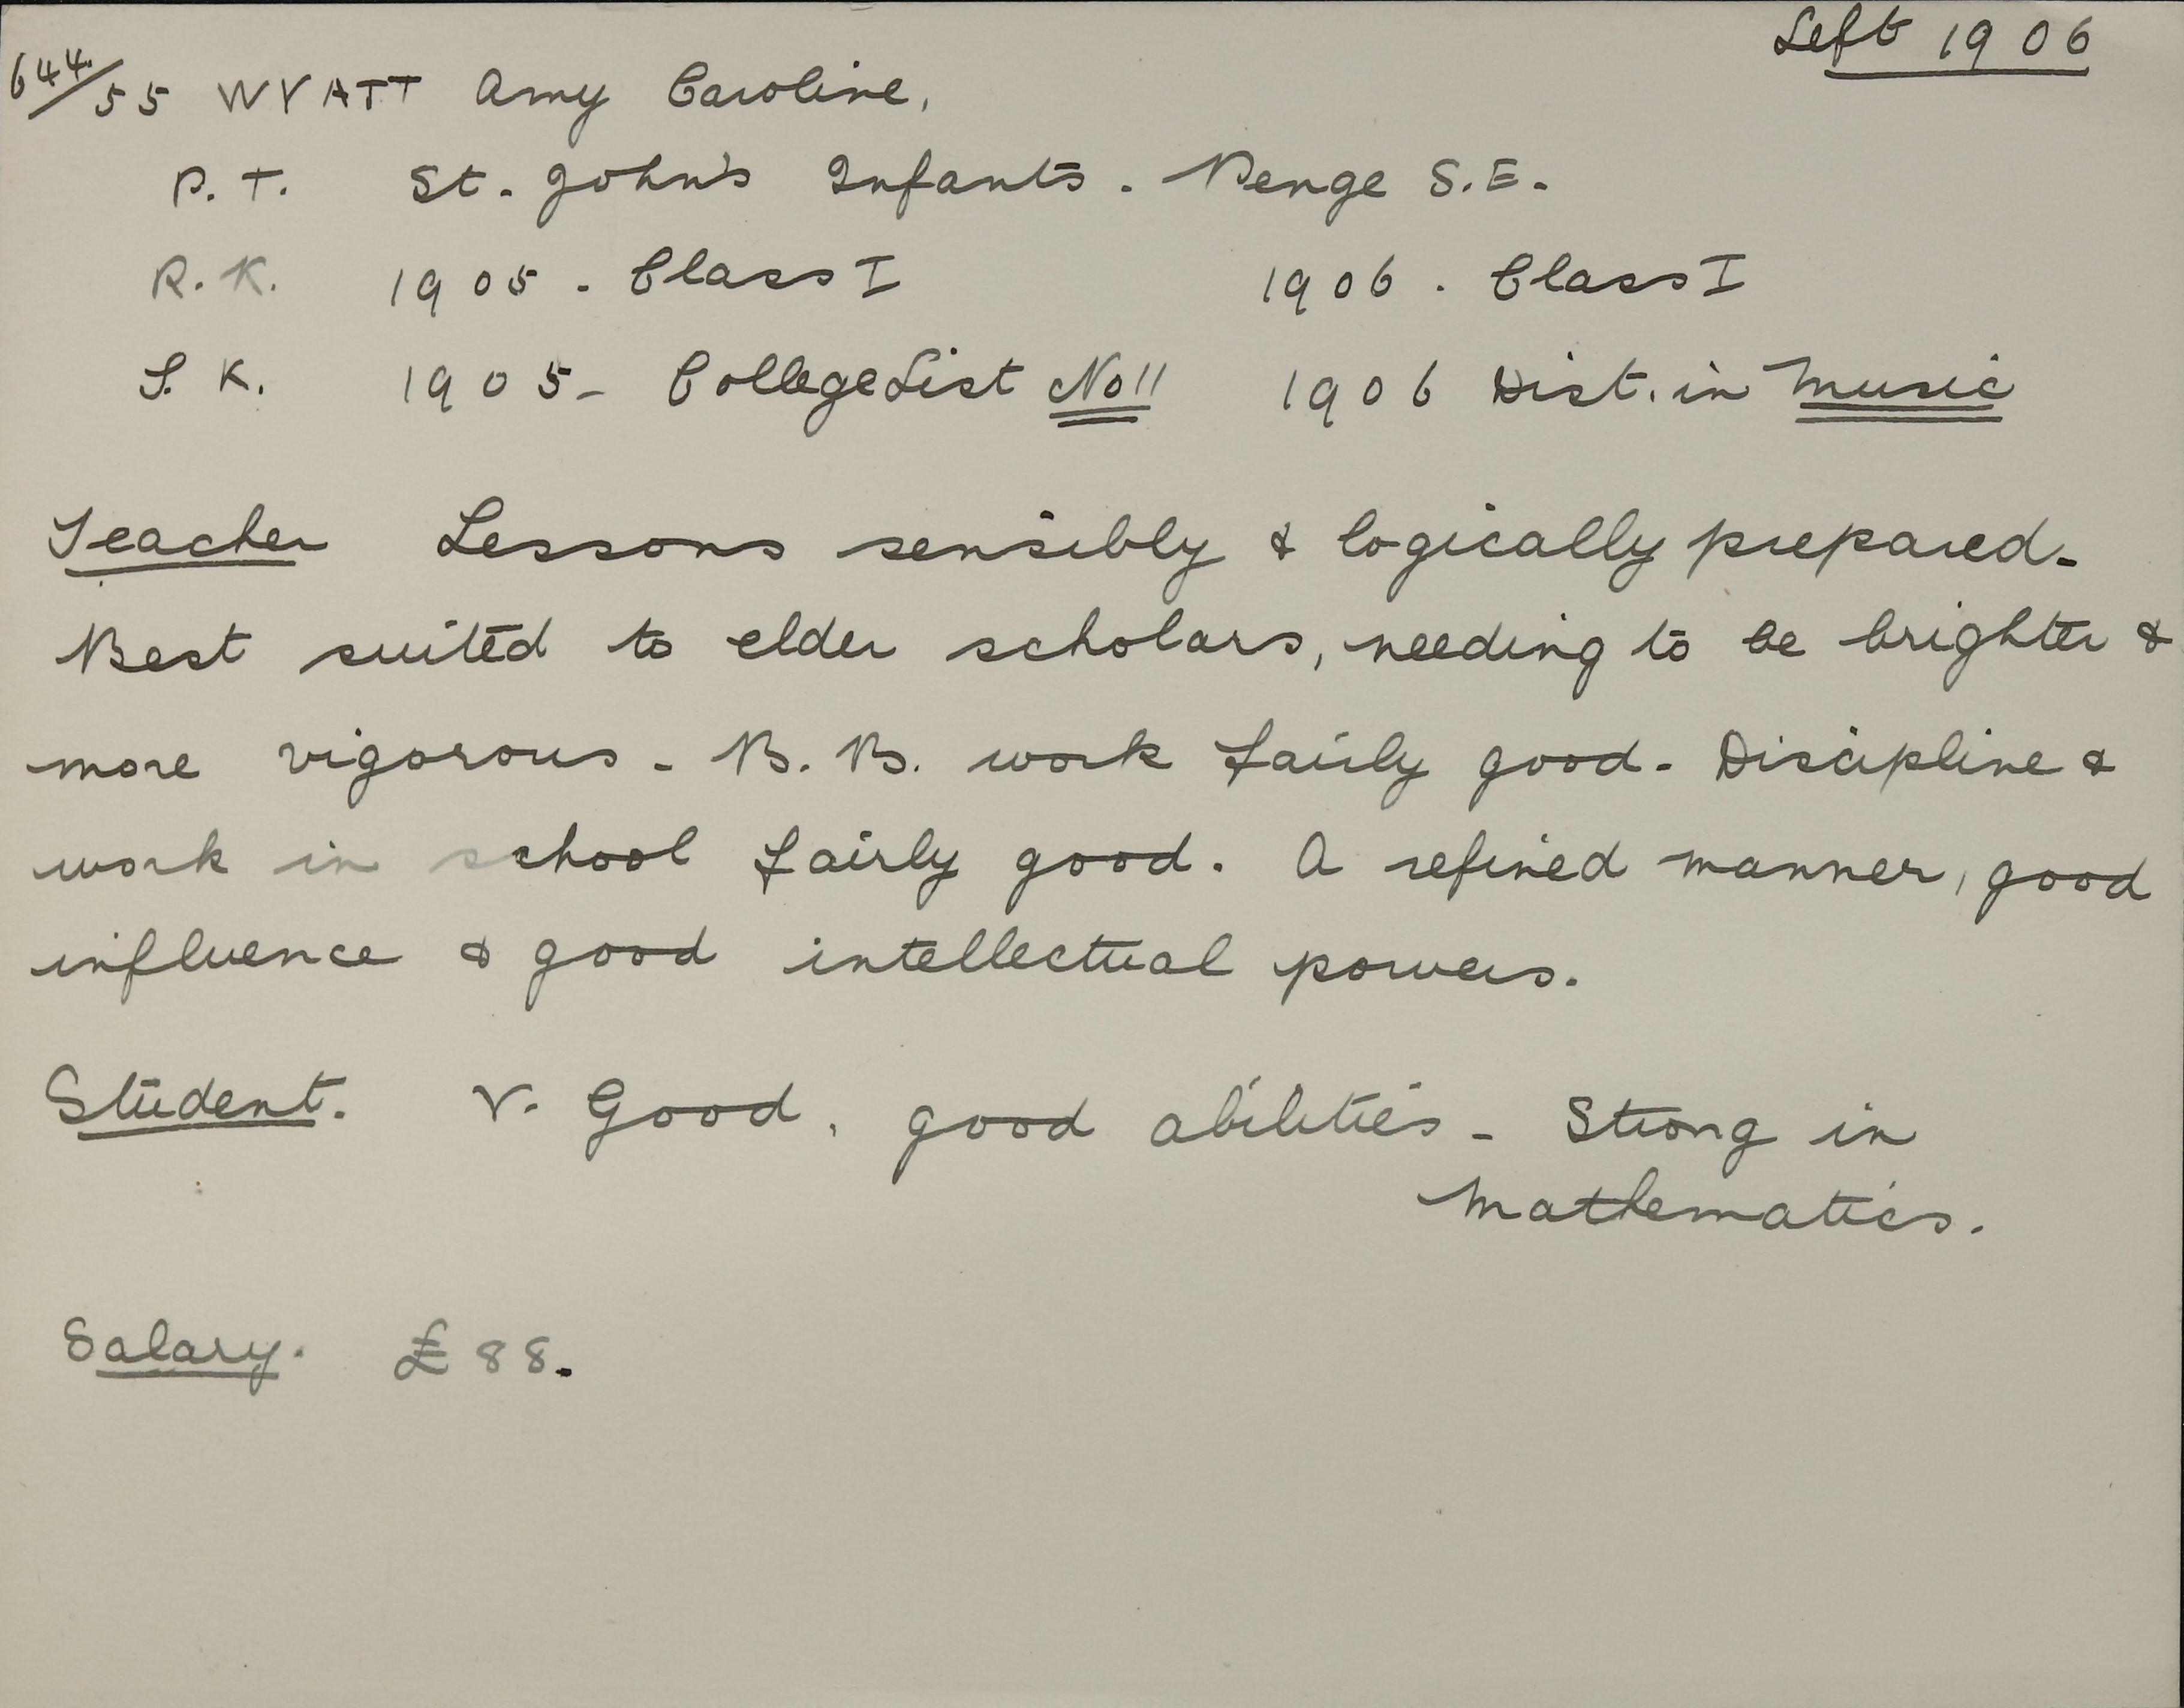 Left 1906
644/55 WYATT Amy Caroline,
P. T. St. John's Infants. Penge S.E.
R. K. 1905. Class I 1906. Class I
S. K. 1905- College List No 11 1906 Dist. in Music
Teacher Lessons sensibly & logically prepared.
Best suited to elder scholars, needing to be brighter &
more vigorous. B. B. work fairly good. Discipline &
work in school fairly good. A refined manner, good
influence & good intellectual powers.
Student. V. Good, good abilities - Strong in
Mathematics.
Salary. £88.